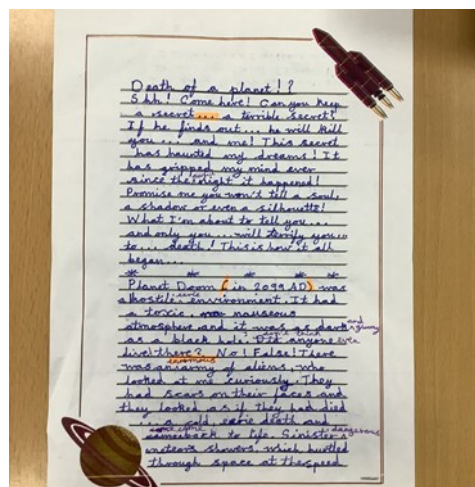 Death of a planet!?
Shh! Come here! Can you keep
a secret... a terrible secret?
If he finds out... he will kill
you... and me! This secret
has haunted my dreams! It
has gripped my mind ever
since the night it happened!
Promise me you won't tell a soul,
a shadow or even a silhouette!
What I'm about to tell you...
and only you... will terrify you...
to... death! This is how it all
began...
* * * * *
Planet Doom (in 2099 AD) was
a hostile, eerie environment. It had
a toxic, nauseous
atmosphere and it was as dark and
as a black hole. Did anyone even
live there? No! False! There
was an enormous army of aliens, who
looked at me curiously. They
had scars on their faces and
they looked as if they had died
a cold, eerie death and
came back to life. Sinister
meteors showers, which hurtled
through space at the speed